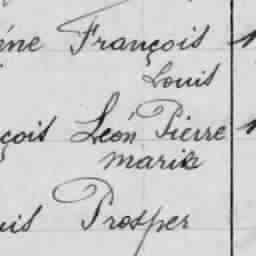 éne François
Louis
çois Léon Pierre
marie
uis Prosper